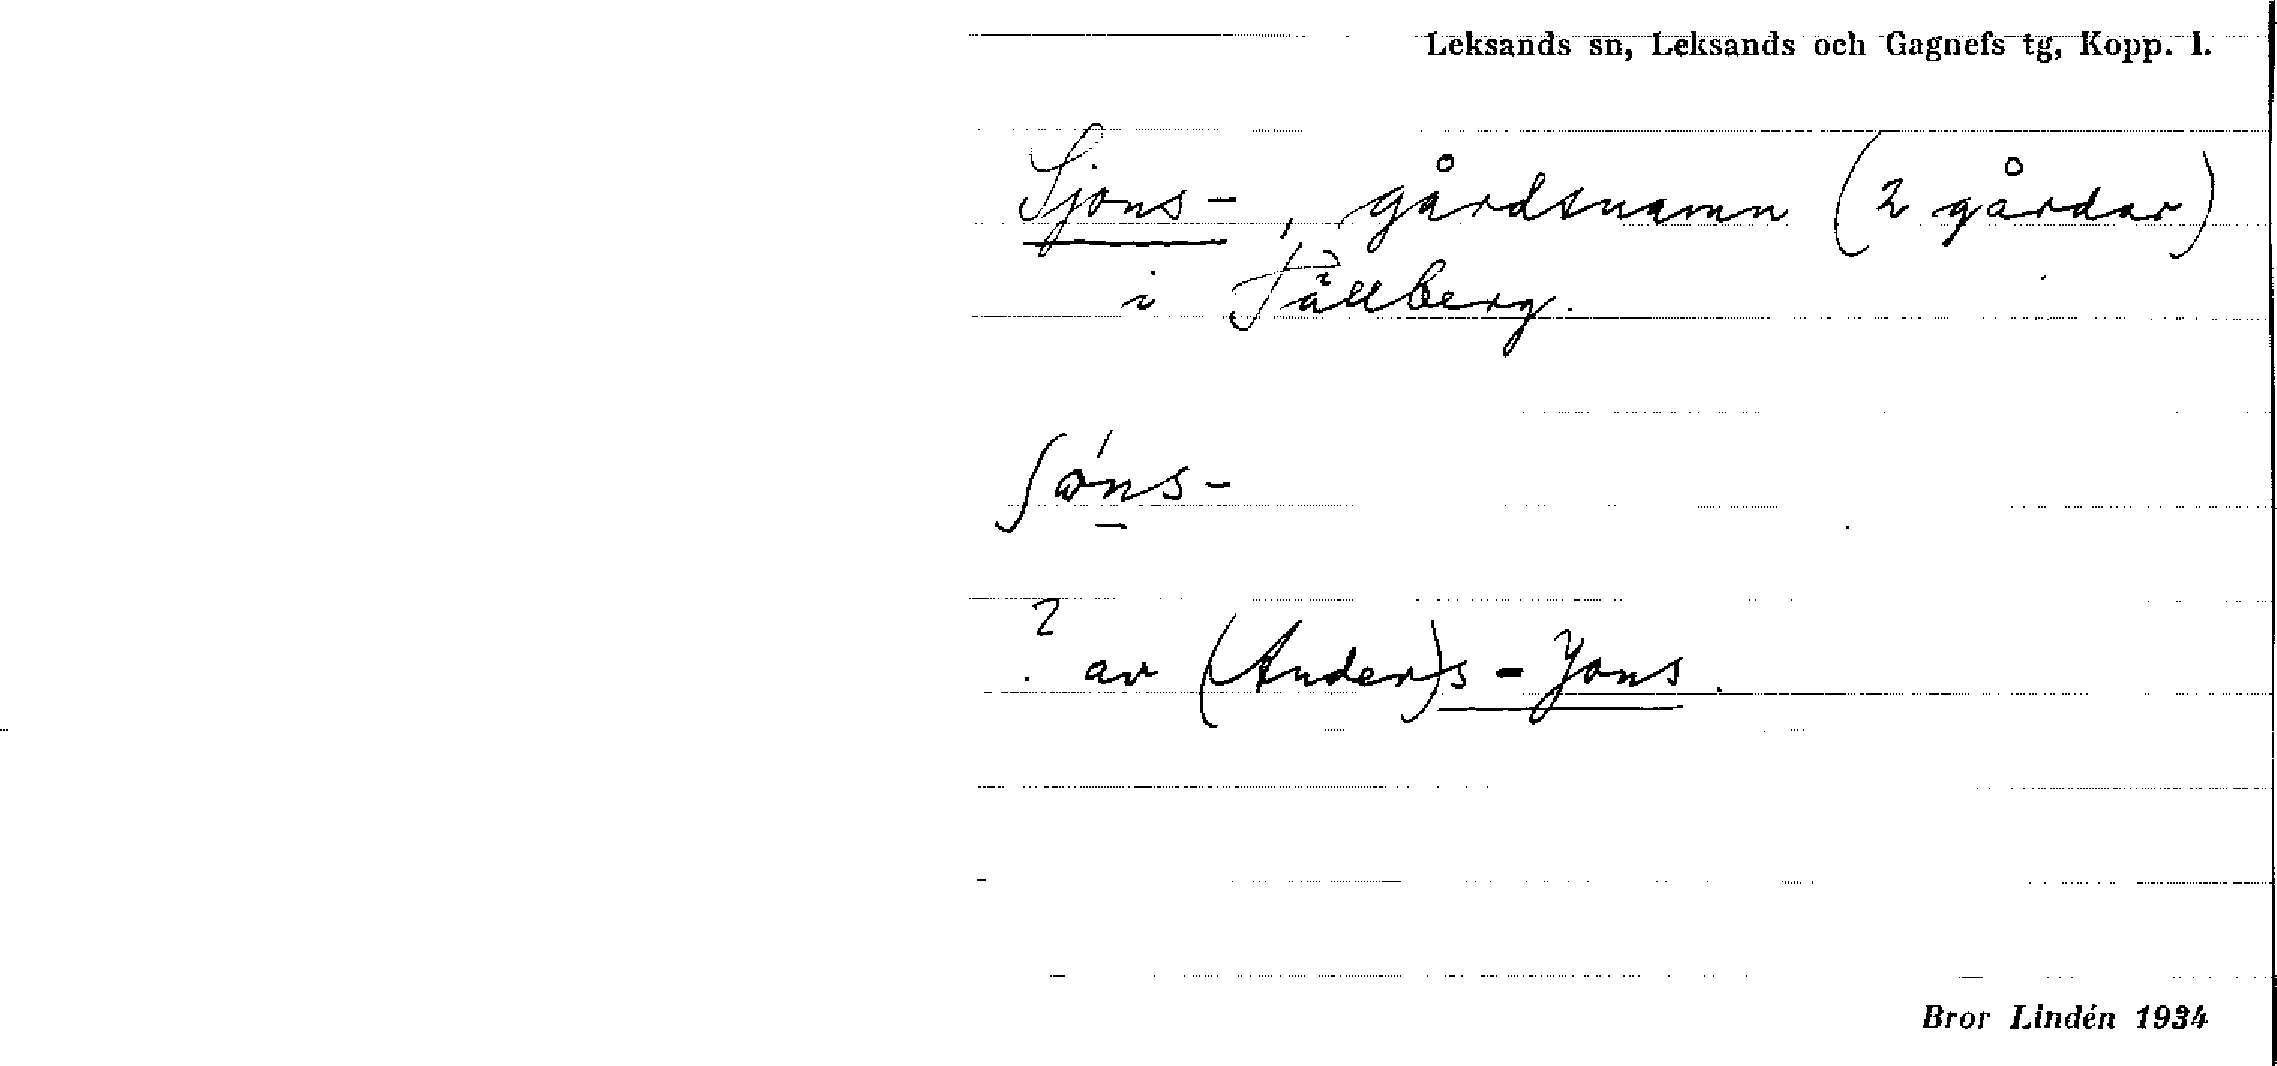 Leksands sn, Leksands och Gagnefs tg, Kopp. l.
Sjons-, gårdsnamn (2 gårdar)
i Tällberg.
ʃo̍ns-
? av (Ander)s-Jons.
Bror Lindén 1934